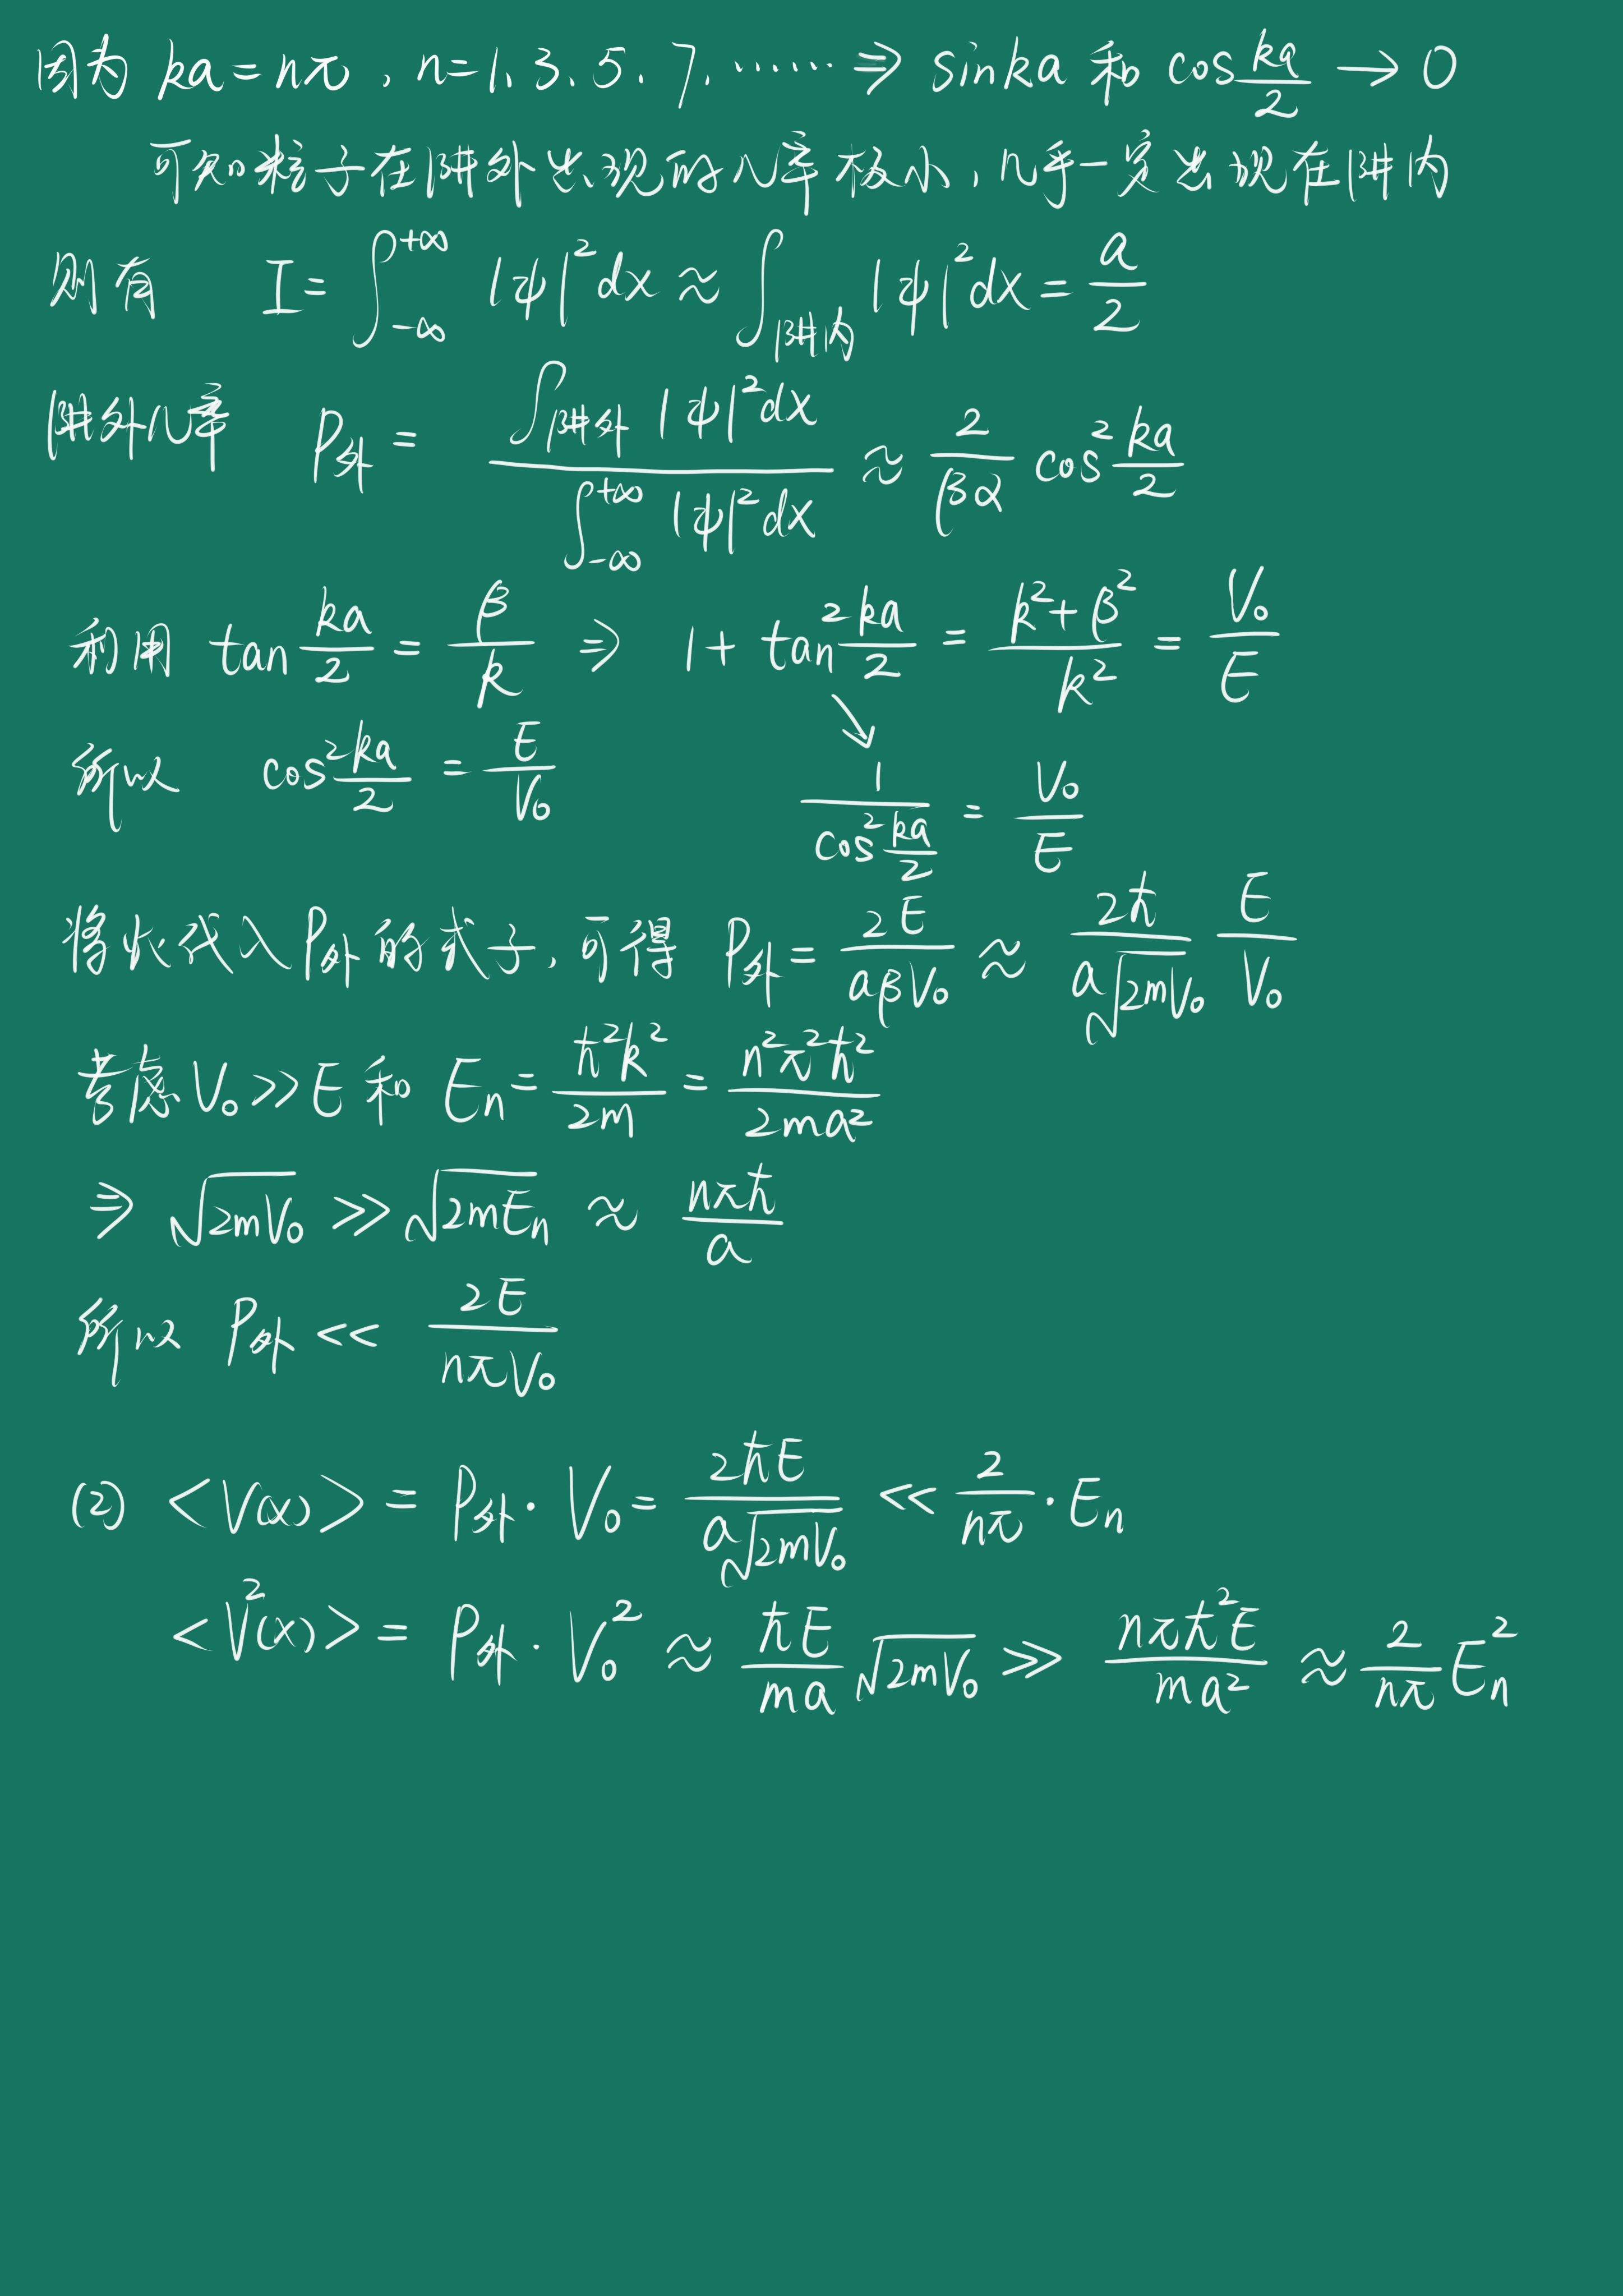 因为 ka = nπ , n=1、3、5、7、…… ⇒ sin ka 和 cos ka/2 → 0
可知粒子在阱外出现的几率极小,几乎一定出现在阱内
则有 I = ∫_{-∞}^{+∞} |ψ|² dx ≈ ∫_{阱内} |ψ|² dx = a/2
阱外几率 P外 = ∫_{阱外} |ψ|² dx / ∫_{-∞}^{+∞} |ψ|² dx ≈ 2/(βα) cos² ka/2
利用 tan ka/2 = β/k ⇒ 1 + tan² ka/2 = (k²+β²)/k² = V₀/E
所以 cos² ka/2 = E/V₀ ↘ 1/(cos² ka/2) = V₀/E
将此代入P外的式子,可得 P外 = 2E/(aβV₀) ≈ 2ħ/(a√(2mV₀)) E/V₀
考虑 V₀ >> E 和 Eₙ = ħ²k²/2m = n²π²ħ²/2ma²
⇒ √(2mV₀) >> √(2mEₙ) ≈ nπħ/a
所以 P外 << 2E/(nπV₀)
(2) <V(x)> = P外 · V₀ = 2ħE/(a√(2mV₀)) << 2/(nπ) · Eₙ
<V²(x)> = P外 · V₀² ≈ ħE/(ma) √(2mV₀) >> nπħ²E/(ma²) ≈ 2/(nπ) Eₙ²